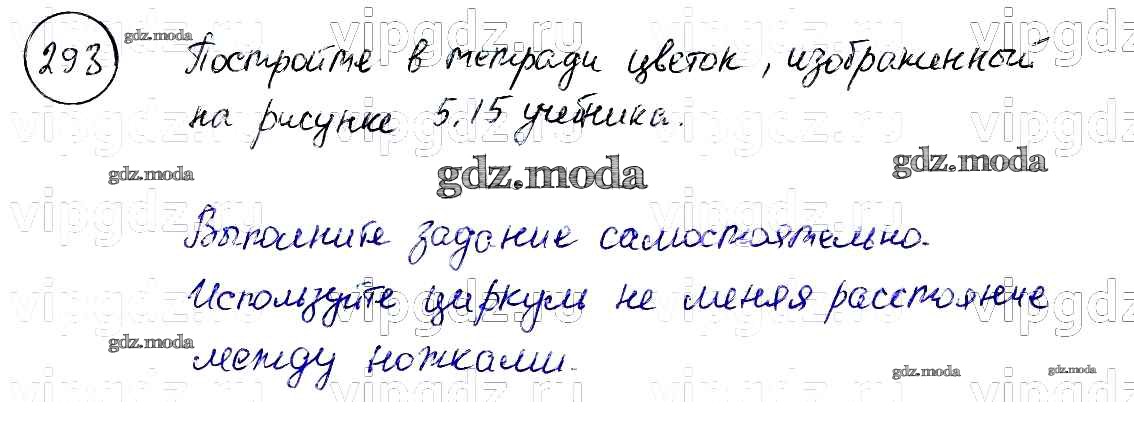 293 gdz.moda Постройте в тетради цветок, изображенный
на рисунке 5.15 учебника.
gdz.moda gdz.moda gdz.moda
vipgdz.ru vipgdz.ru vipgdz.ru
Выполните задание самостоятельно.
Используйте циркуль не меняя расстояние
gdz.moda между ножками. gdz.moda gdz.moda